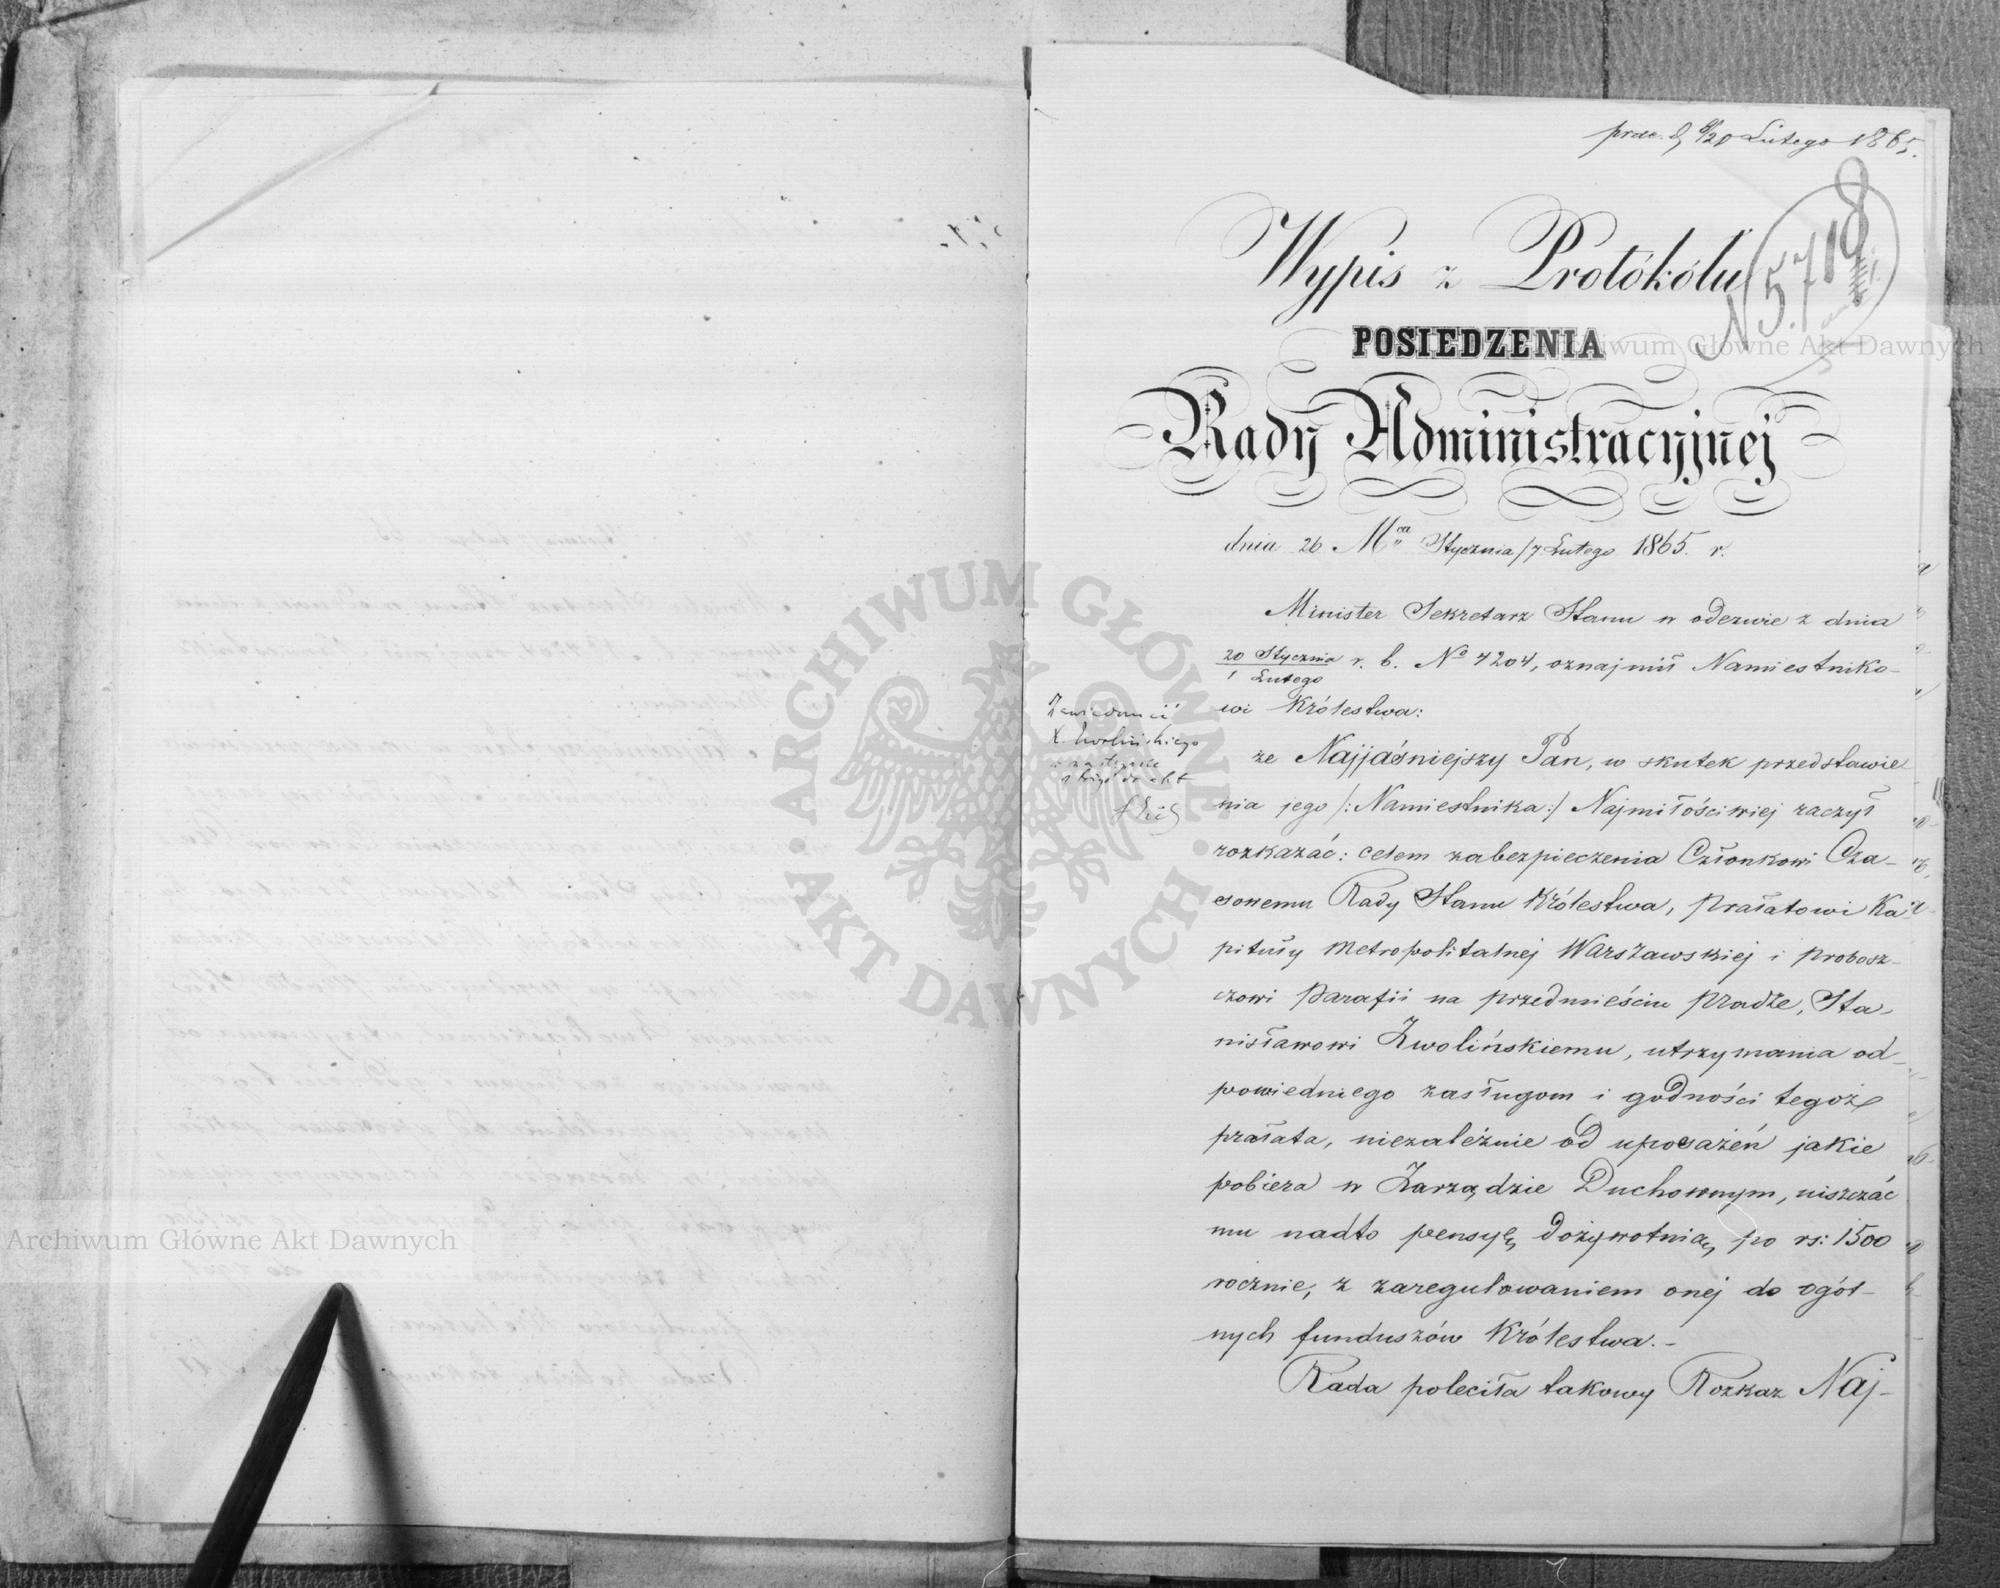 praes. d. 8/20 Lutego 1865.
N 5718
Wypis z Protokółu
POSIEDZENIA
Rady Administracyjnej
dnia 26 Mca Stycznia/7 Lutego 1865. r.
Minister Sekretarz Stanu w odezwie z dnia
20 Stycznia/1 Lutego r. b. No 4204, oznajmił Namiestniko-
wi Królestwa:
że Najjaśniejszy Pan, w skutek przedstawie
nia jego /:Namiestnika:/ Najmiłościwiej raczył
rozkazać: celem zabezpieczenia Członkowi Cza-
sowemu Rady Stanu Królestwa, Prałatowi Ka-
pituły Metropolitalnej Warszawskiej i Probosz-
czowi Parafii na przedmieściu Pradze, Sta-
nisławowi Zwolińskiemu, utrzymania od-
powiedniego zasługom i godności tegoż
prałata, niezależnie od uposażeń jakie
pobiera w Zarządzie Duchownym, uiszczać
mu nadto pensyę dożywotnią po rs: 1500
rocznie, z zaregulowaniem onej do ogól-
nych funduszów Królestwa.-
Rada poleciła takowy Rozkaz Naj-
Zawiadomić
X. Zwolińskiego
do akt
Archiwum Główne Akt Dawnych
ARCHIWUM GŁÓWNE AKT DAWNYCH
Archiwum Główne Akt Dawnych